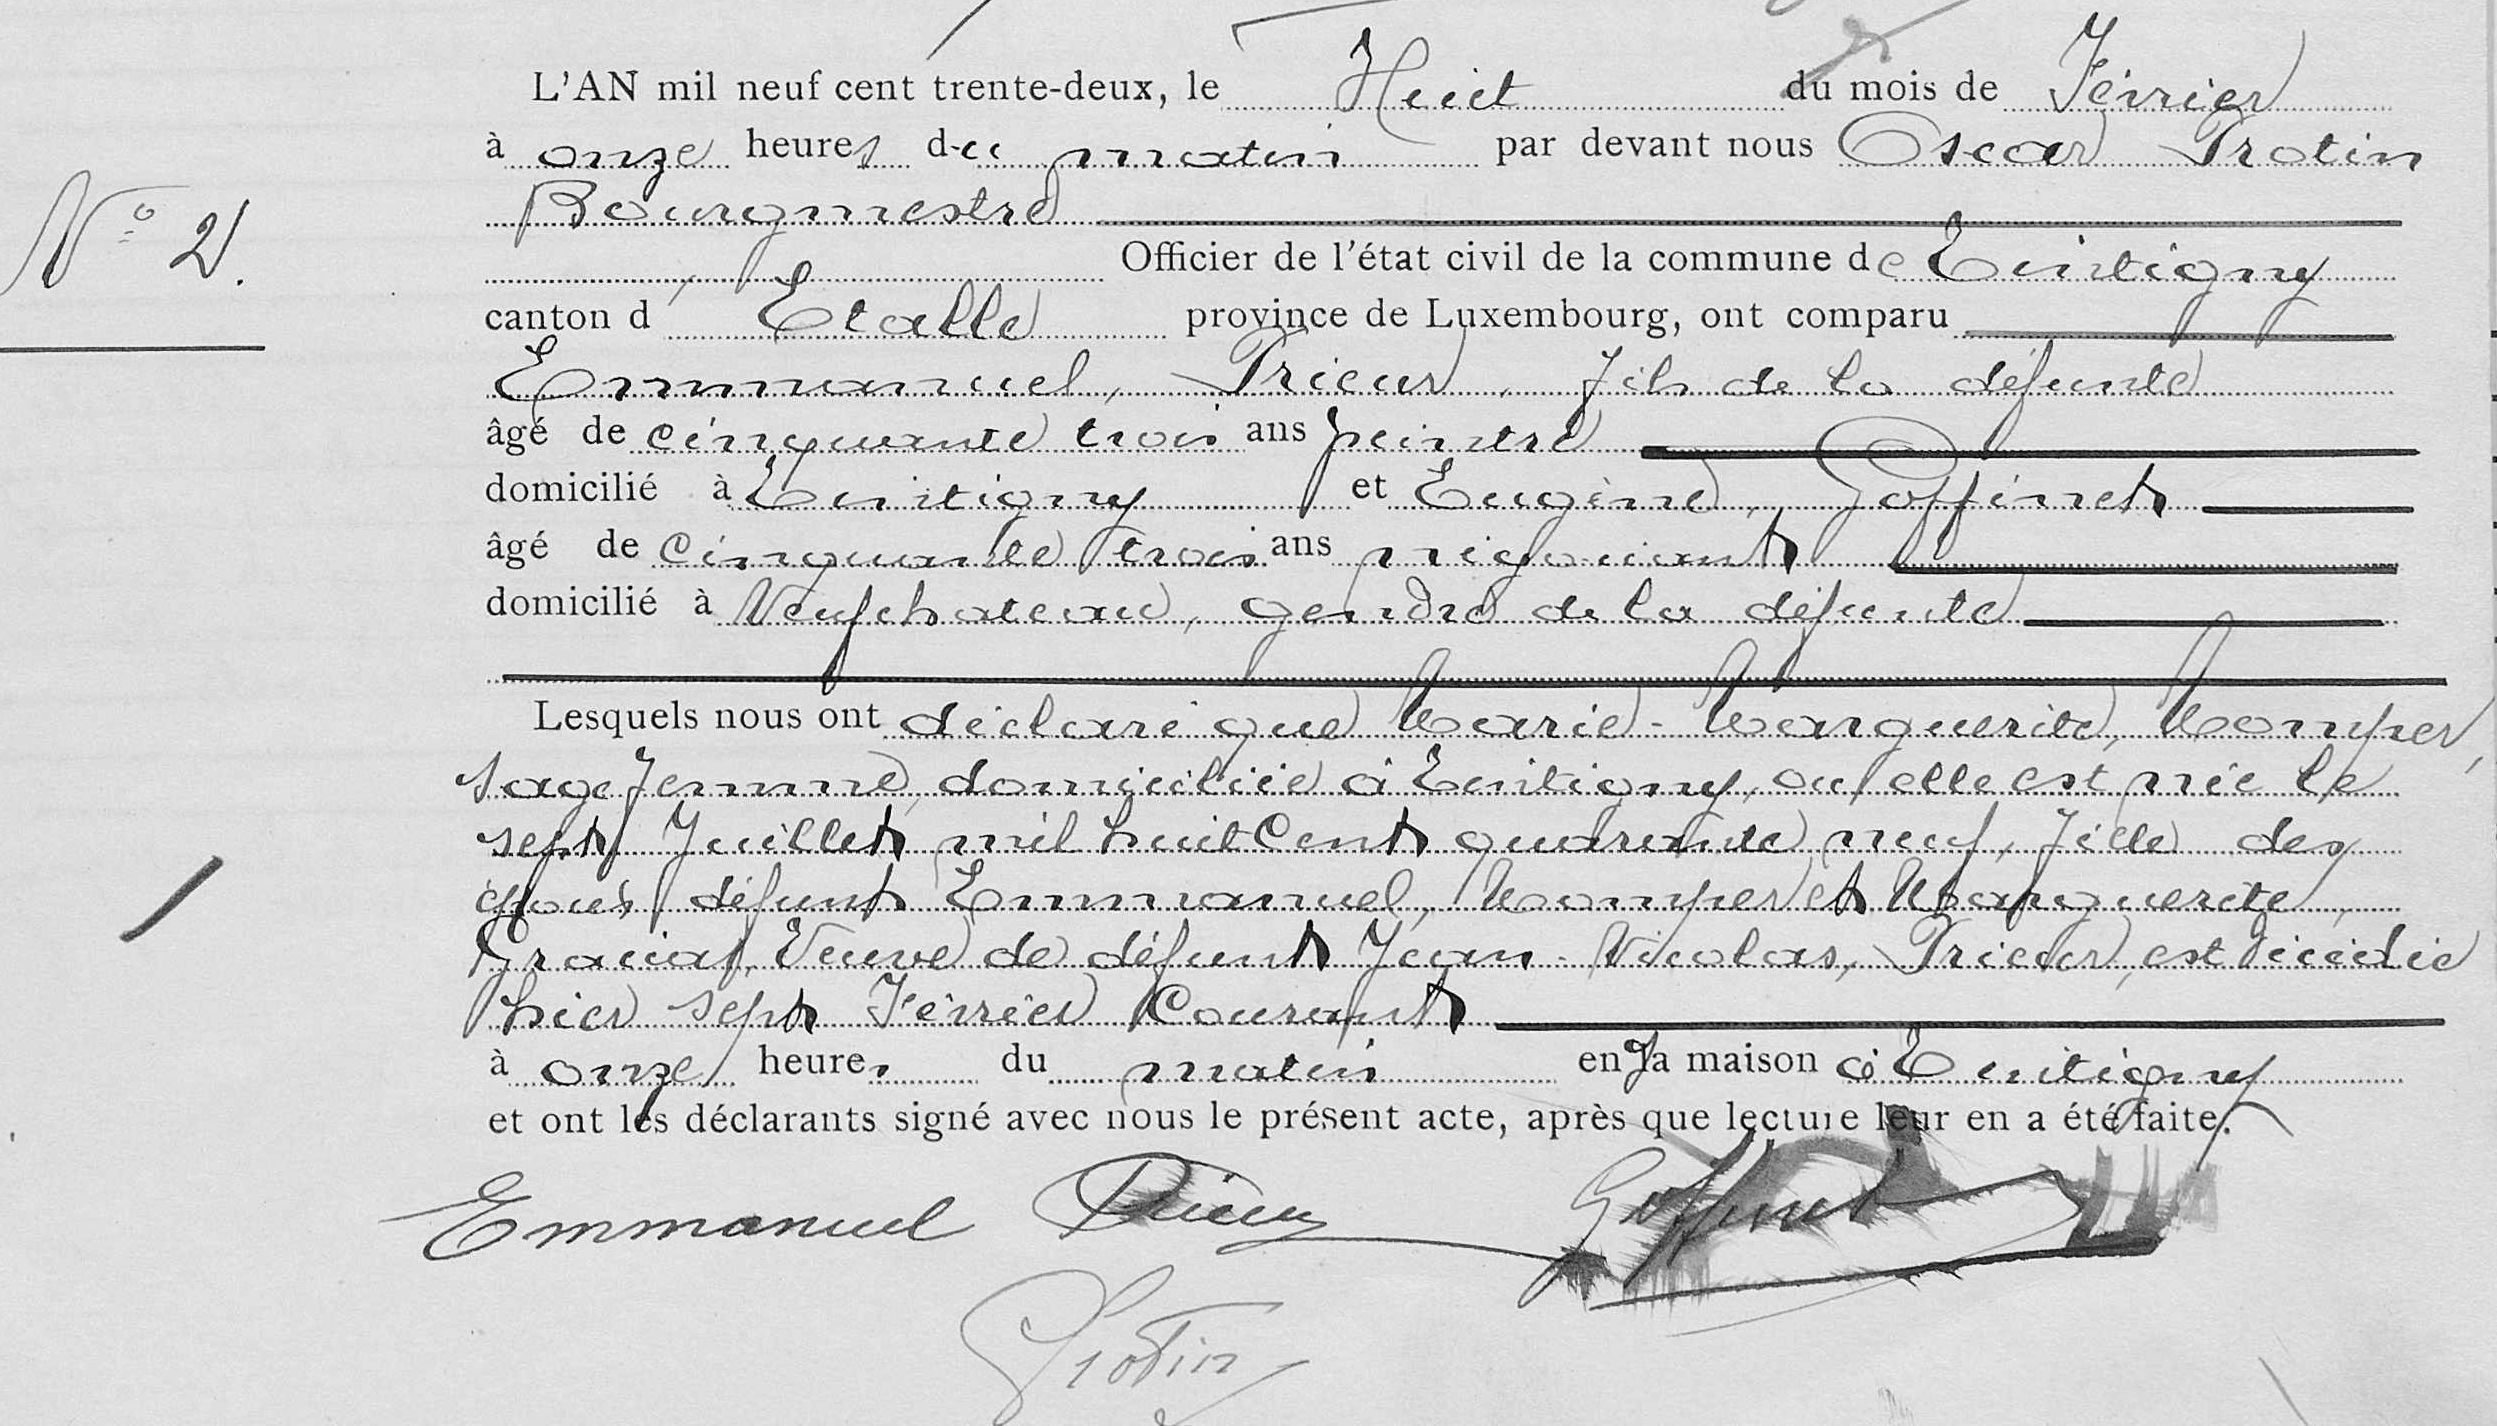 L'AN mil neuf cent trente-deux, le Huit du mois de Février
à onze heures du matin par devant nous Oscar Protin
Bourgmestre
N° 2.
Officier de l'état civil de la commune de Eintigny
canton d'Etalle province de Luxembourg, ont comparu
Emmanuel, Prieur, fils de la défunte
âgé de cinquante trois ans peintre
domicilié à Eintigny et Eugène, Goffinet
âgé de Cinquante trois ans négociant
domicilié à Neufchateau, gendre de la défunte
Lesquels nous ont déclaré que Marie-Marguerite, Momper,
sage femme, domiciliée à Eintigny, ou elle est née le
sept Juillet mil huit Cent quarante neuf, fille des
époux défunt Emmanuel, Momper et Marguerite,
Graciat, Veuve de défunt Jean-Nicolas, Prieur, est décédée
hier sept Février Courant
à onze heures du matin en sa maison à Eintigny
et ont les déclarants signé avec nous le présent acte, après que lecture leur en a été faite.
Emmanuel Prieur Goffinet
Protin